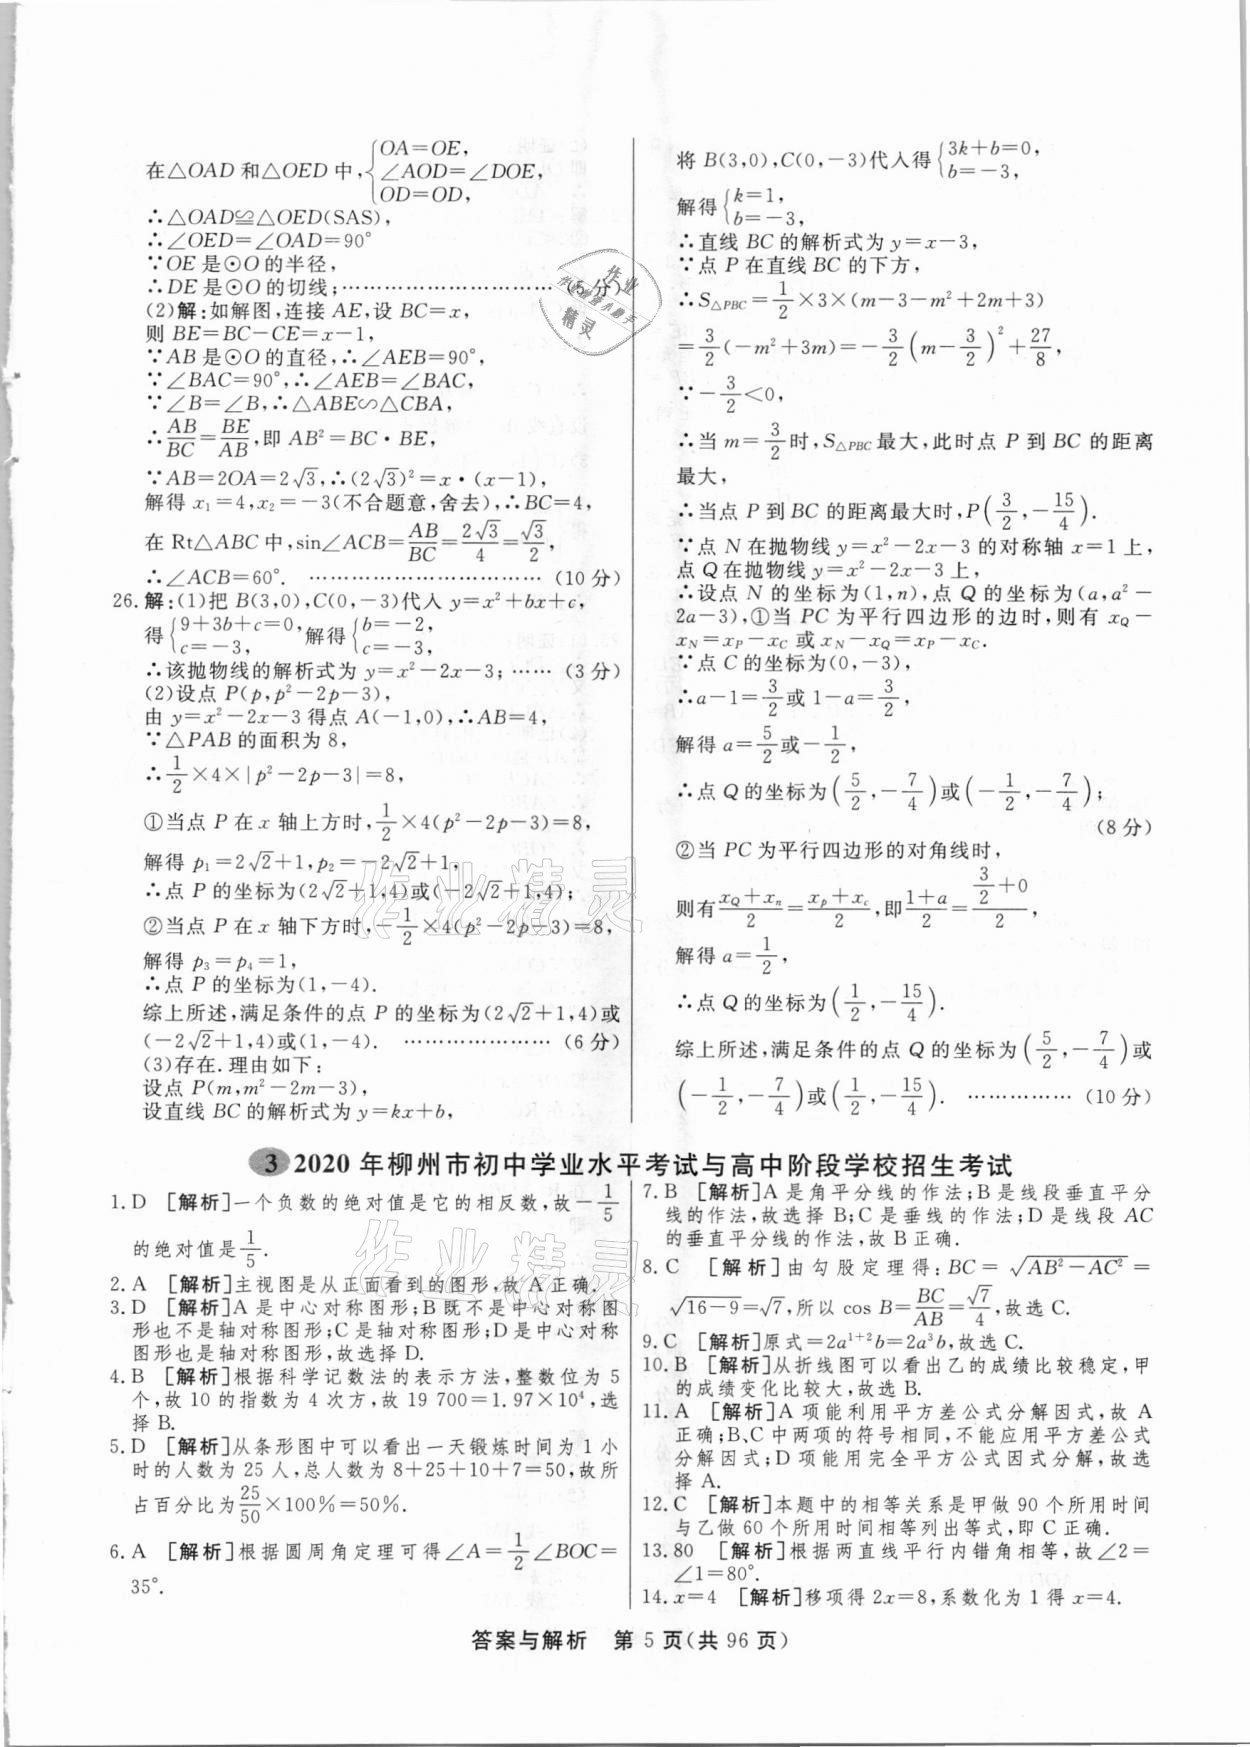 在△OAD 和△OED 中,{OA=OE,
∠AOD=∠DOE,
OD=OD,
∴△OAD≌△OED(SAS),
∴∠OED=∠OAD=90°
∵OE 是⊙O 的半径,
∴DE 是⊙O 的切线;…………………………(5 分)
(2)解:如解图,连接 AE,设 BC=x,
则 BE=BC-CE=x-1,
∵AB 是⊙O 的直径,∴∠AEB=90°,
∵∠BAC=90°,∴∠AEB=∠BAC,
∵∠B=∠B,∴△ABE∽△CBA,
∴AB/BC=BE/AB,即 AB²=BC·BE,
∵AB=2OA=2√3,∴(2√3)²=x·(x-1),
解得 x₁=4,x₂=-3(不合题意,舍去),∴BC=4,
在 Rt△ABC 中,sin∠ACB=AB/BC=2√3/4=√3/2,
∴∠ACB=60°. …………………………(10 分)
26.解:(1)把 B(3,0),C(0,-3)代入 y=x²+bx+c,
得{9+3b+c=0, c=-3, 解得{b=-2, c=-3,
∴该抛物线的解析式为 y=x²-2x-3;……(3 分)
(2)设点 P(p,p²-2p-3),
由 y=x²-2x-3 得点 A(-1,0),∴AB=4,
∵△PAB 的面积为 8,
∴1/2×4×|p²-2p-3|=8,
①当点 P 在 x 轴上方时,1/2×4(p²-2p-3)=8,
解得 p₁=2√2+1,p₂=-2√2+1,
∴点 P 的坐标为(2√2+1,4)或(-2√2+1,4);
②当点 P 在 x 轴下方时,-1/2×4(p²-2p-3)=8,
解得 p₃=p₄=1,
∴点 P 的坐标为(1,-4).
综上所述,满足条件的点 P 的坐标为(2√2+1,4)或
(-2√2+1,4)或(1,-4). ………………(6 分)
(3)存在.理由如下:
设点 P(m,m²-2m-3),
设直线 BC 的解析式为 y=kx+b,
将 B(3,0),C(0,-3)代入得{3k+b=0, b=-3,
解得{k=1, b=-3,
∴直线 BC 的解析式为 y=x-3,
∵点 P 在直线 BC 的下方,
∴S△PBC=1/2×3×(m-3-m²+2m+3)
=3/2(-m²+3m)=-3/2(m-3/2)²+27/8,
∵-3/2<0,
∴当 m=3/2时,S△PBC最大,此时点 P 到 BC 的距离
最大,
∴当点 P 到 BC 的距离最大时,P(3/2,-15/4).
∵点 N 在抛物线 y=x²-2x-3 的对称轴 x=1 上,
点 Q 在抛物线 y=x²-2x-3 上,
∴设点 N 的坐标为(1,n),点 Q 的坐标为(a,a²-
2a-3),①当 PC 为平行四边形的边时,则有 xQ-
xN=xP-xC 或 xN-xQ=xP-xC.
∵点 C 的坐标为(0,-3),
∴a-1=3/2或 1-a=3/2,
解得 a=5/2或-1/2,
∴点 Q 的坐标为(5/2,-7/4)或(-1/2,-7/4);
(8 分)
②当 PC 为平行四边形的对角线时,
则有(xQ+xn)/2=(xp+xc)/2,即(1+a)/2=(3/2+0)/2,
解得 a=1/2,
∴点 Q 的坐标为(1/2,-15/4).
综上所述,满足条件的点 Q 的坐标为(5/2,-7/4)或
(-1/2,-7/4)或(1/2,-15/4). ……………(10 分)
3 2020 年柳州市初中学业水平考试与高中阶段学校招生考试
1.D [解析]一个负数的绝对值是它的相反数,故-1/5
的绝对值是1/5.
2.A [解析]主视图是从正面看到的图形,故 A 正确.
3.D [解析]A 是中心对称图形;B 既不是中心对称图
形也不是轴对称图形;C 是轴对称图形;D 是中心对称
图形也是轴对称图形,故选择 D.
4.B [解析]根据科学记数法的表示方法,整数位为 5
个,故 10 的指数为 4 次方,故 19 700=1.97×10⁴,选
择 B.
5.D [解析]从条形图中可以看出一天锻炼时间为 1 小
时的人数为 25 人,总人数为 8+25+10+7=50,故所
占百分比为25/50×100%=50%.
6.A [解析]根据圆周角定理可得∠A=1/2∠BOC=
35°.
7.B [解析]A 是角平分线的作法;B 是线段垂直平分
线的作法,故选择 B;C 是垂线的作法;D 是线段 AC
的垂直平分线的作法,故 B 正确.
8.C [解析]由勾股定理得:BC=√(AB²-AC²)=
√(16-9)=√7,所以 cos B=BC/AB=√7/4,故选 C.
9.C [解析]原式=2a¹⁺²b=2a³b,故选 C.
10.B [解析]从折线图可以看出乙的成绩比较稳定,甲
的成绩变化比较大,故选 B.
11.A [解析]A 项能利用平方差公式分解因式,故 A
正确;B、C 中两项的符号相同,不能应用平方差公式
分解因式;D 项能用完全平方公式因式分解,故选
择 A.
12.C [解析]本题中的相等关系是甲做 90 个所用时间
与乙做 60 个所用时间相等列出等式,即 C 正确.
13.80 [解析]根据两直线平行内错角相等,故∠2=
∠1=80°.
14.x=4 [解析]移项得 2x=8,系数化为 1 得 x=4.
答案与解析 第 5 页(共 96 页)
作业精灵
作业精灵